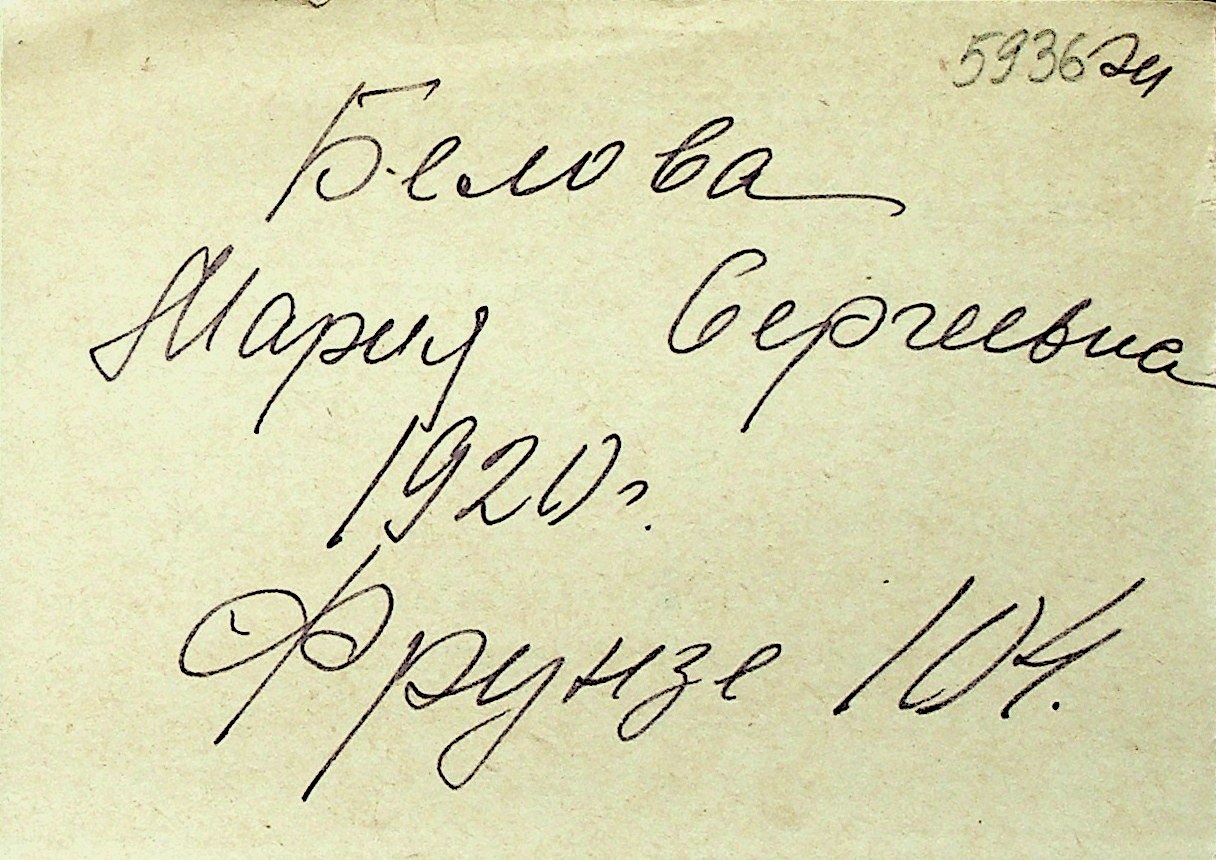 5936
Белова
Мария Сергеевна
1920 г.
Фрунзе 104.